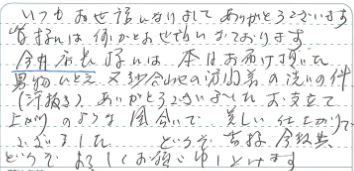 いつもお世話になりましてありがとうございます
皆様には何かとお世話いただいております
今井店長様には、本日お届け頂いた
男物ひとえ 又紗合わせの訪問着の洗いの件
(汗抜き) ありがとうございました お立て
上がりのような風合いで 美しい仕上りで
ございました どうぞ皆様
どうぞよろしくお願い申し上げます